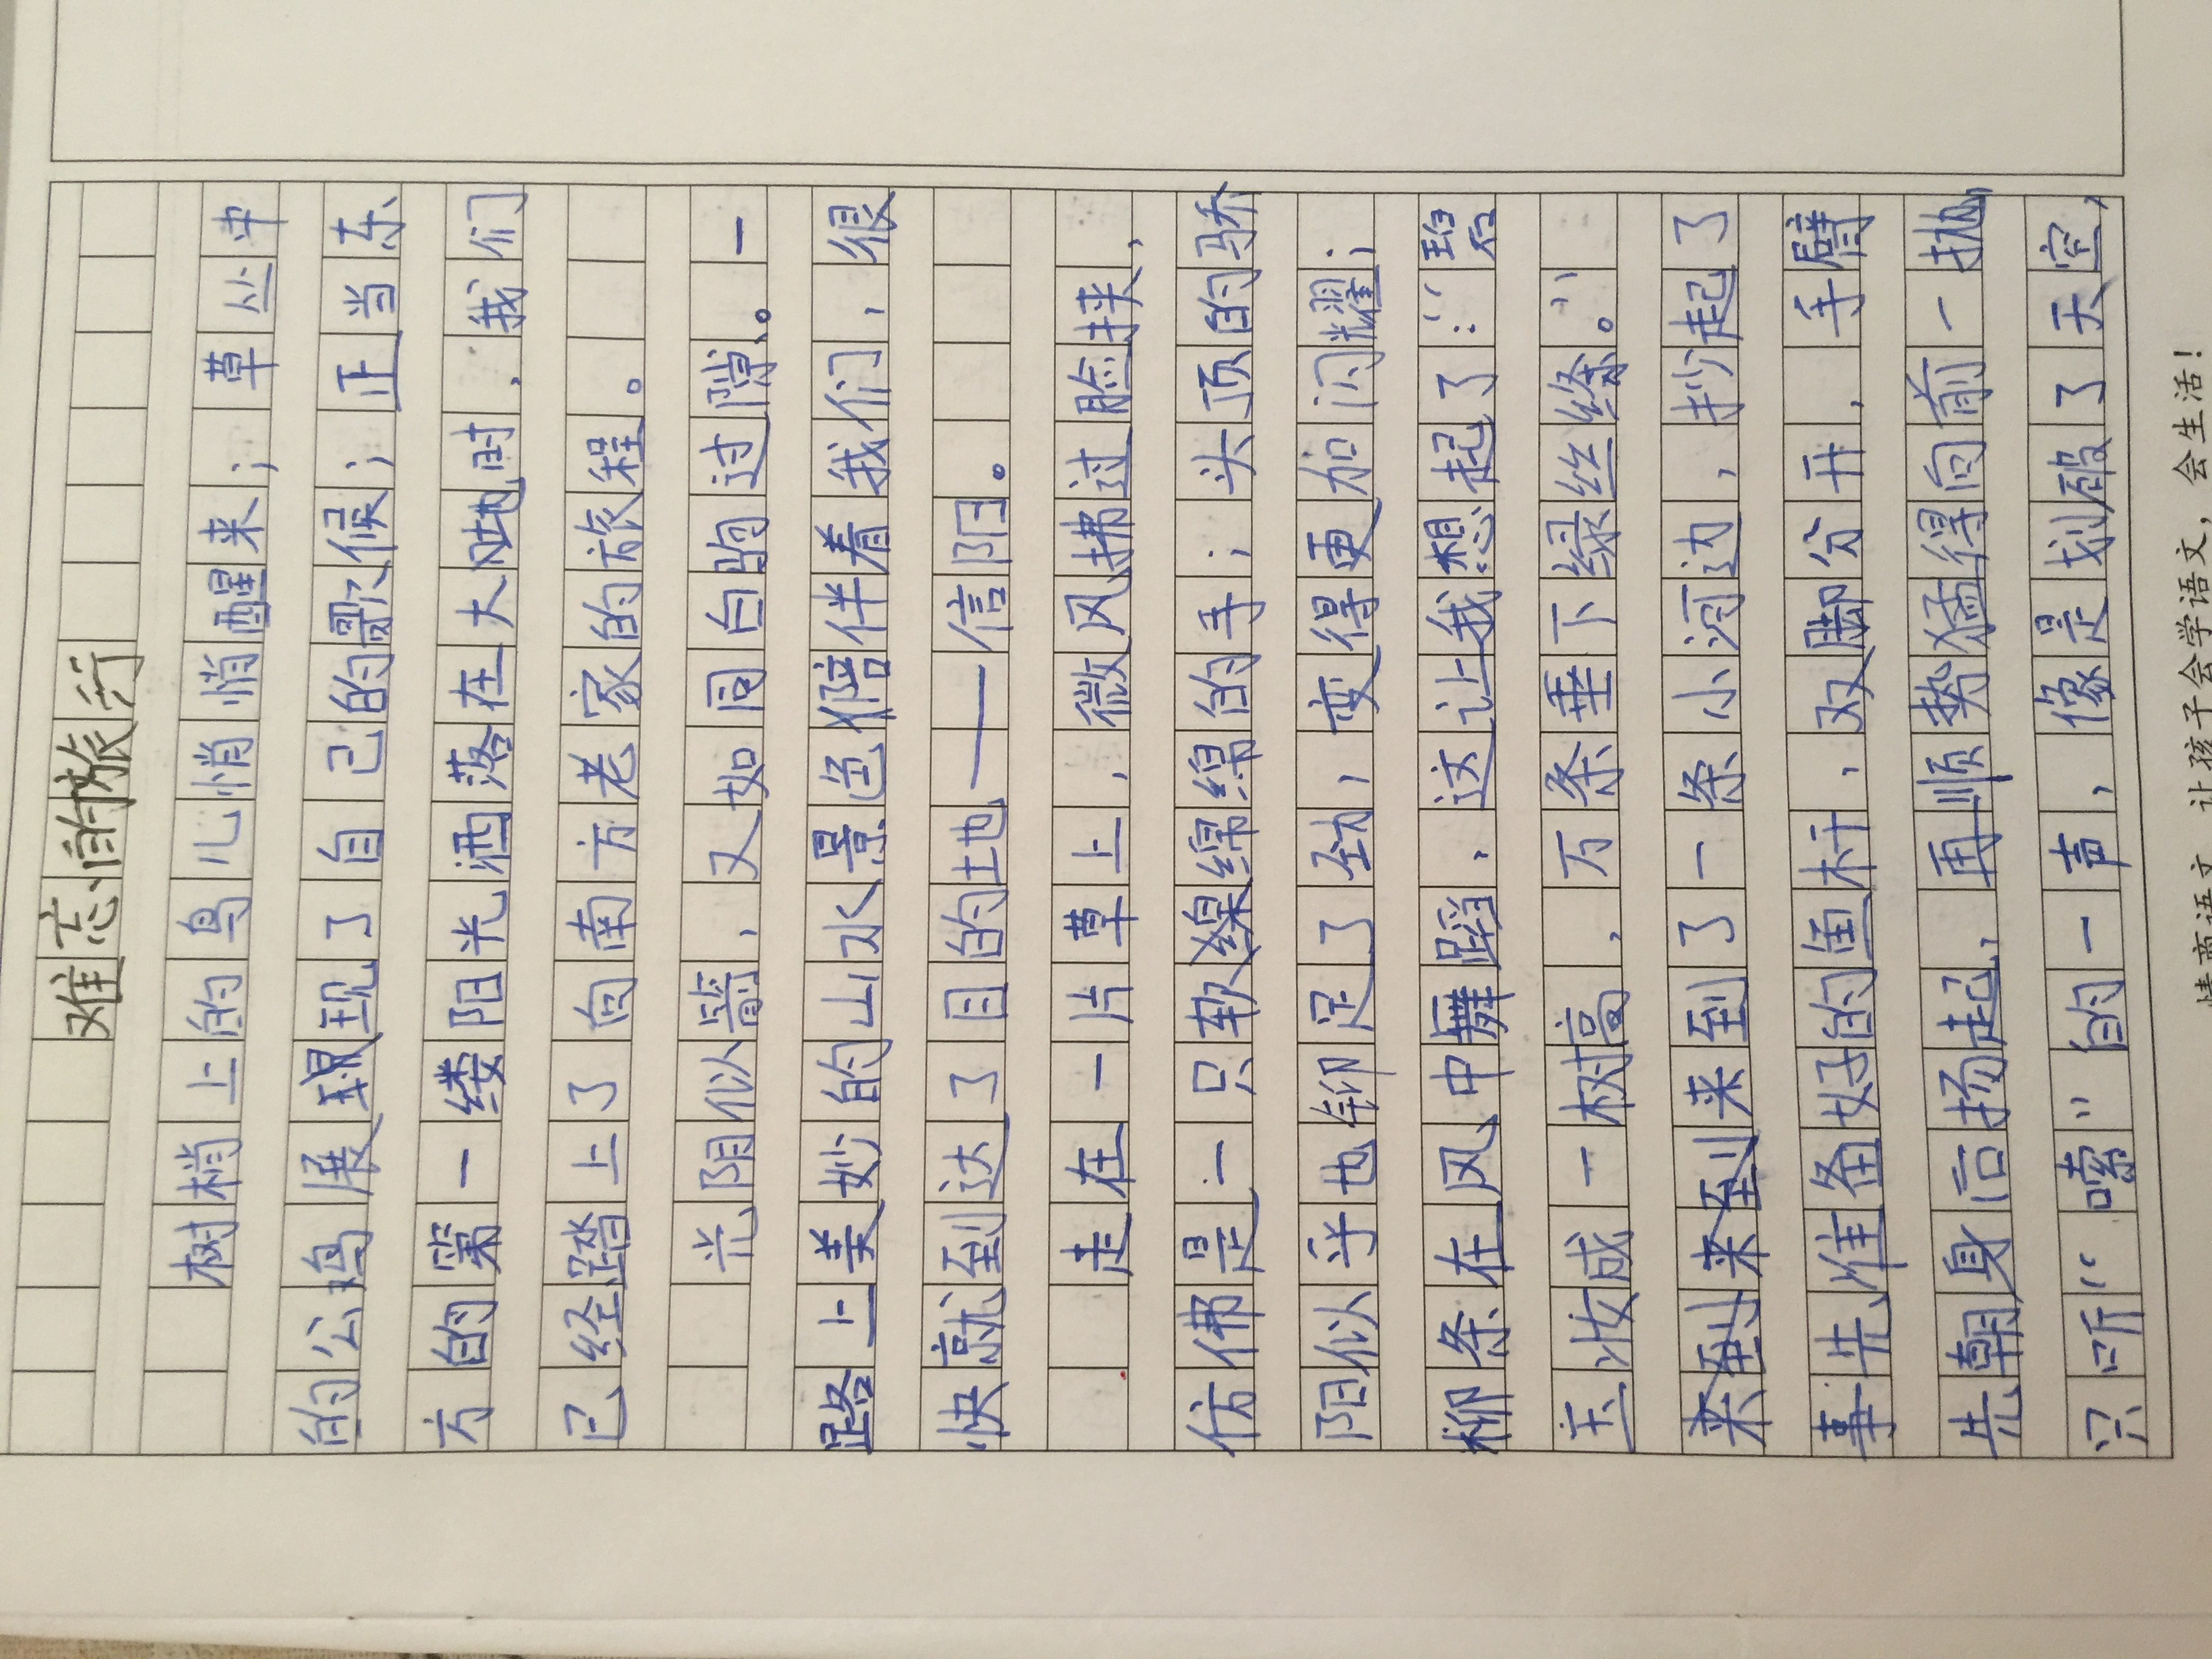 难忘的旅行
树梢上的鸟儿悄悄醒来；草丛中
的公鸡展现了自己的歌候；正当东
方的第一缕阳光洒落在大地时，我们
已经踏上了向南方老家的旅程。
光阴似箭，又如同白驹过隙。一
路上美妙的山水景色陪伴着我们，很
快就到达了目的地——信阳。
走在一片草上，微风拂过脸挟，
仿佛是一只软绵绵的手；头顶的骄
阳似乎也铆足了劲，变得更加闪耀；
柳条在风中舞蹈，这让我想起了：“碧
玉妆成一树高，万条垂下绿丝绦。”
来到了一条小河边，抄起了
事先准备好的鱼杆，双脚分开，手臂
先朝身后扬起，再顺势猛得向前一抛
只听“嗦”的一声，像是划破了天空，
情商语文，让孩子会学语文，会生活！